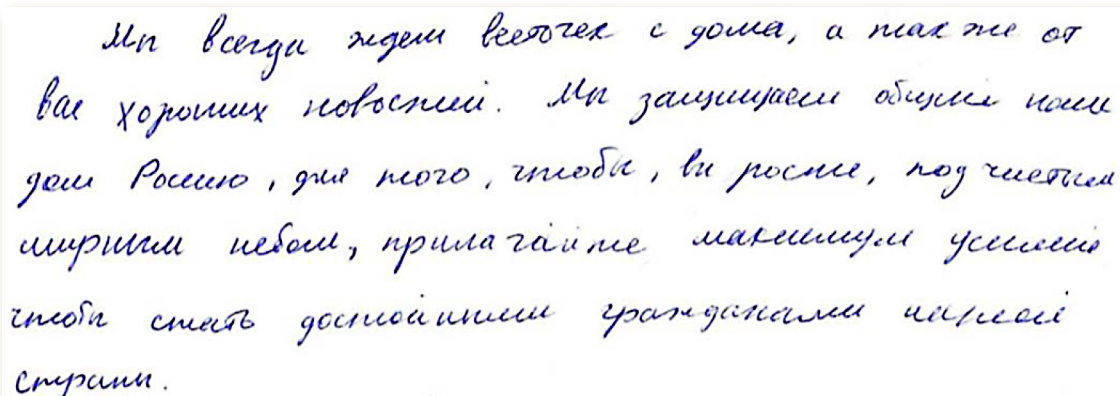 Мы всегда ждем весточек с дома, а также от
вас хороших новостей. Мы защищаем общий наш
дом Россию, для того, чтобы, вы росли, под чистым
мирным небом, прилагайте максимум усилий
чтобы стать достойными гражданами нашей
страны.